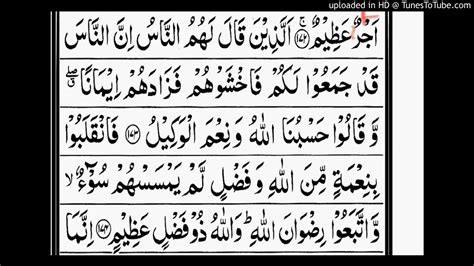 uploaded in HD @ TunesToTube.com
اَجْرٌ عَظِيْمٌ ﴿۱۷۲﴾ اَلَّذِيْنَ قَالَ لَهُمُ النَّاسُ اِنَّ النَّاسَ
قَدْ جَمَعُوْا لَكُمْ فَاخْشَوْهُمْ فَزَادَهُمْ اِيْمَانًا ۖ
وَّ قَالُوْا حَسْبُنَا اللّٰهُ وَنِعْمَ الْوَكِيْلُ ﴿۱۷۳﴾ فَانْقَلَبُوْا
بِنِعْمَةٍ مِّنَ اللّٰهِ وَفَضْلٍ لَّمْ يَمْسَسْهُمْ سُوْٓءٌ ۙ
وَّاتَّبَعُوْا رِضْوَانَ اللّٰهِ ؕ وَاللّٰهُ ذُوْ فَضْلٍ عَظِيْمٍ ﴿۱۷۴﴾ اِنَّمَا